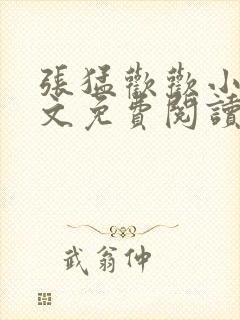 張猛歡歡小
文免費閱讀
武翁仲